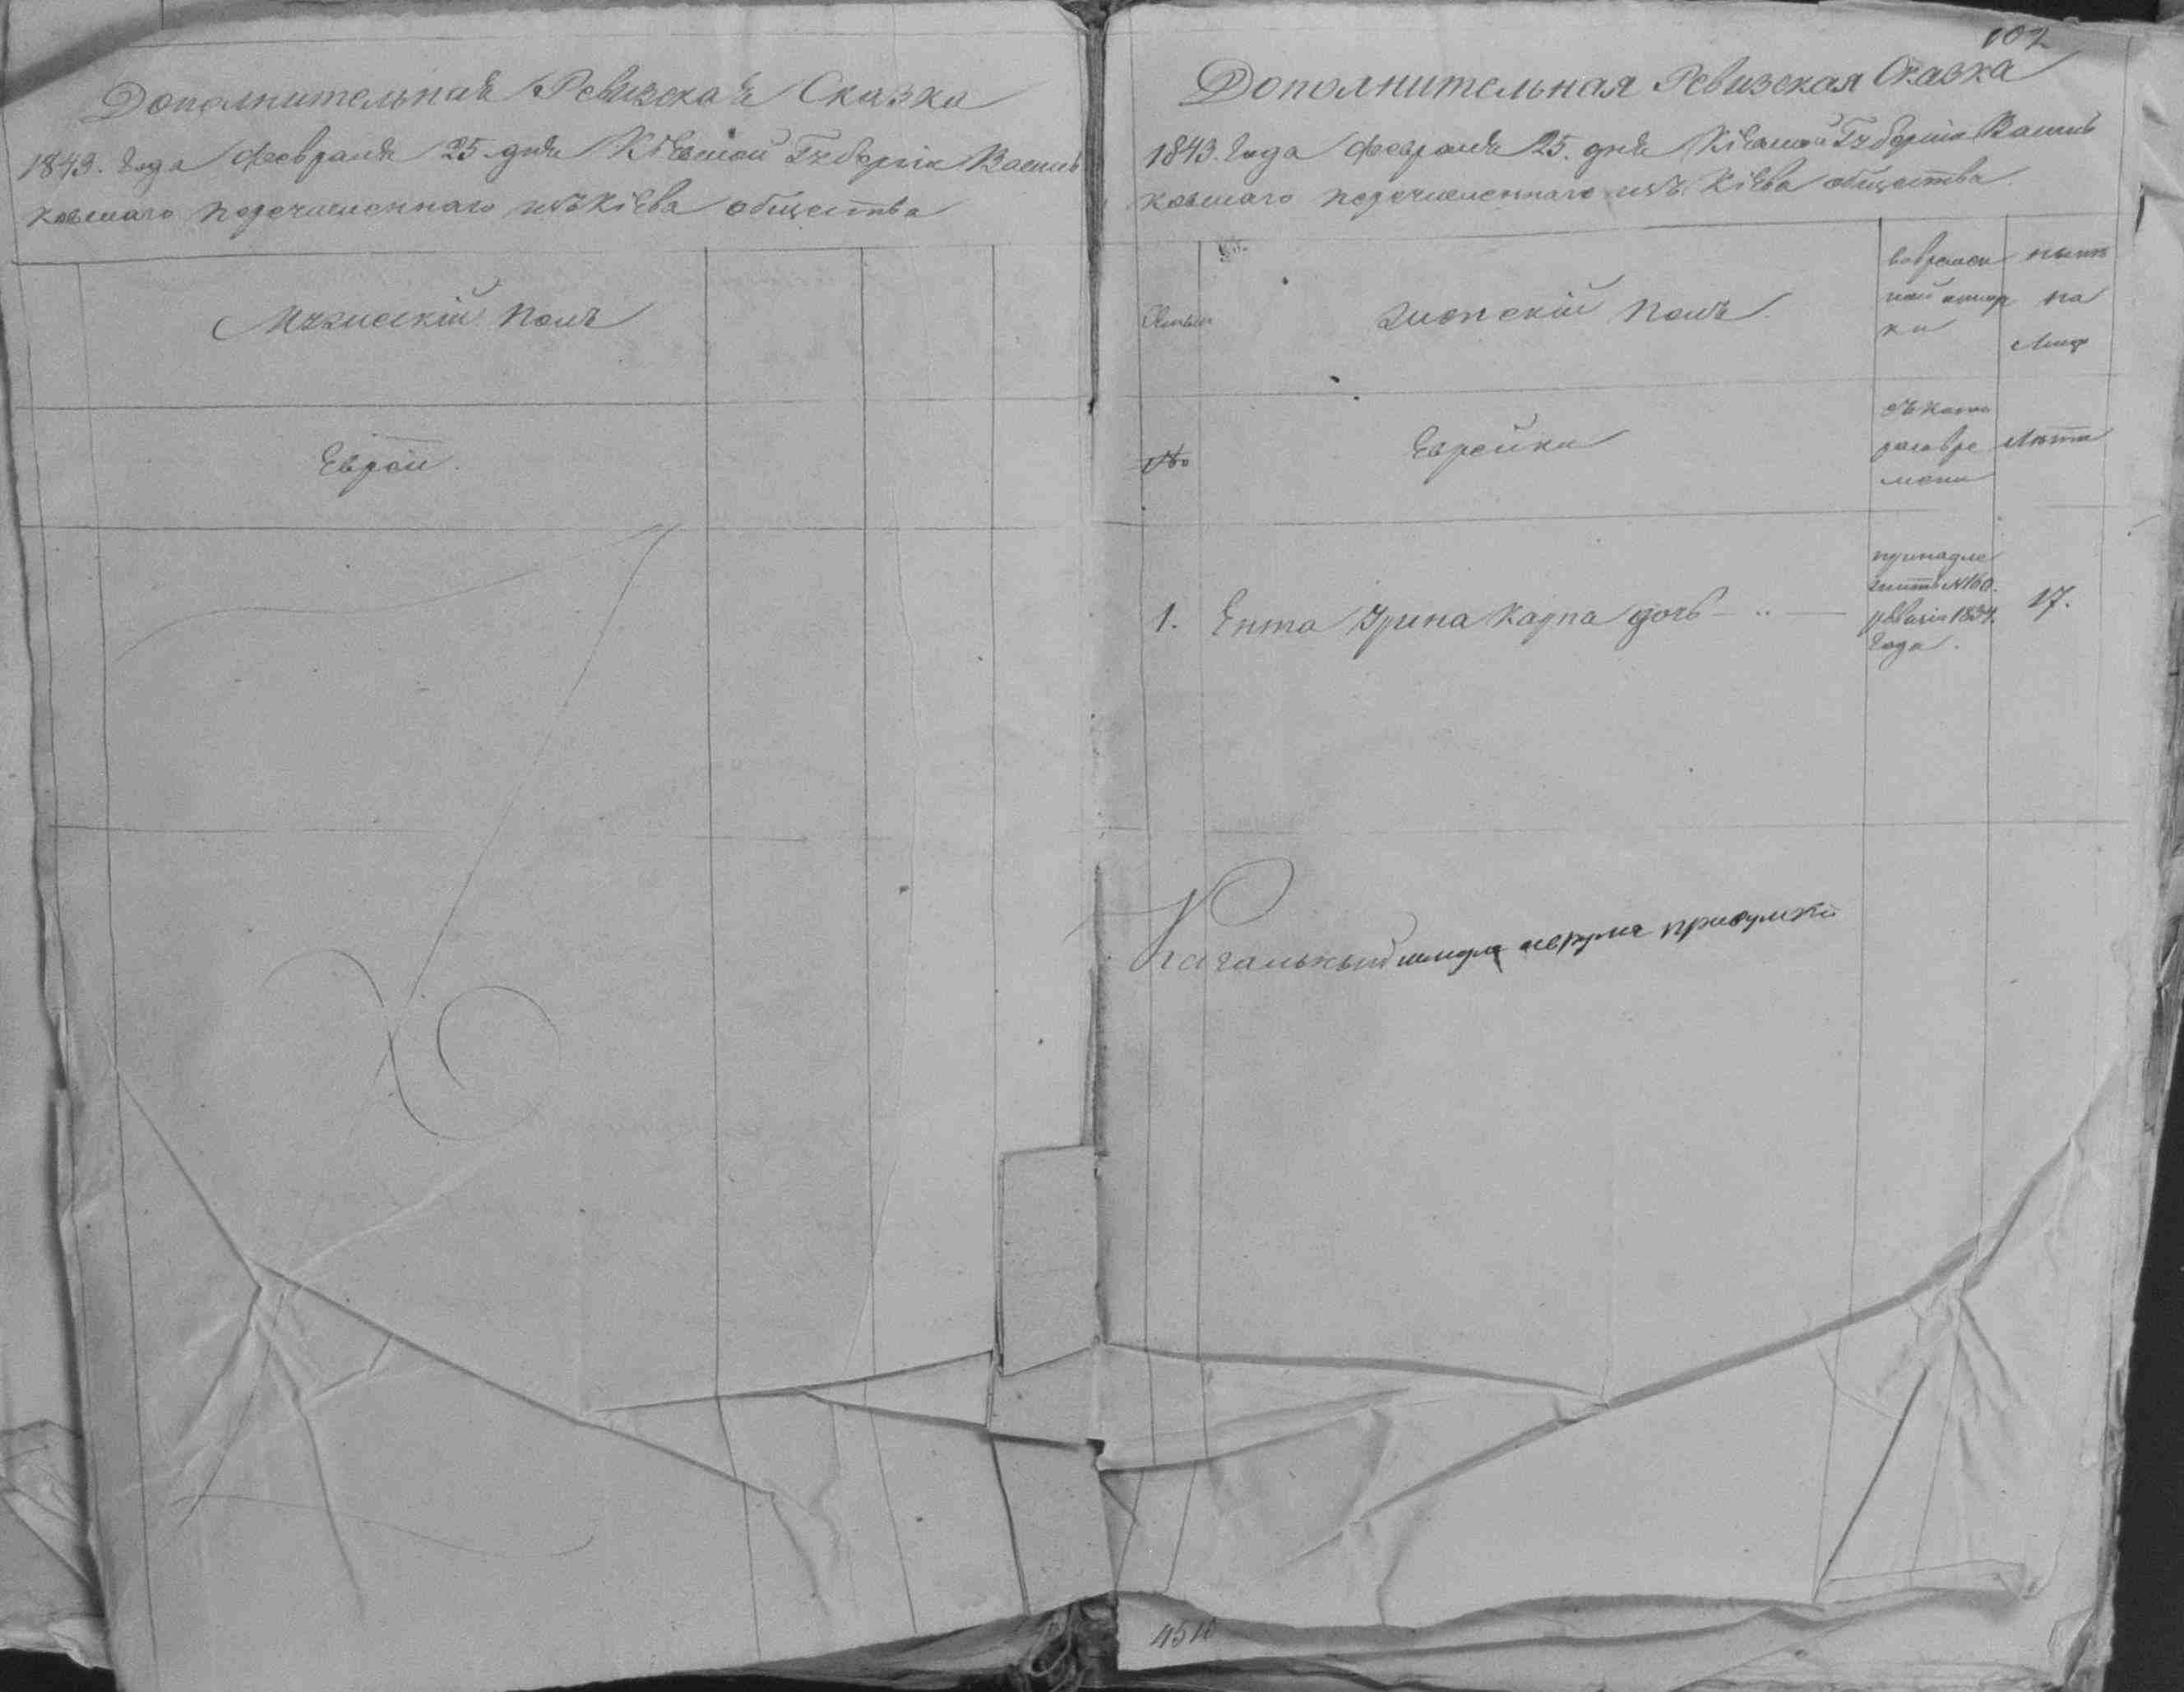 Дополнительная Ревизская Сказка
1843. Года Февраля 25. дня Кіевской Губерніи Василь
ковскаго перечисленнаго изъ Кіева общества
Мужескій полъ
Евреи.
102
Дополнительная Ревизская Сказка
1843. Года Февраля 25. дня Кіевской Губерніи Василь
ковскаго перечисленнаго изъ Кіева общества.
Семьи
Женскій полъ.
вовремен
ной отлуч
ки
нынѣ
на
Лицо
№
Еврейки
съ кото
раго вре
мени
Лѣта
1. Ента Ирина Карпа дочь
принадле
житъ №160.
ревизіи 1834.
Года.
17.
Кагальный
4510